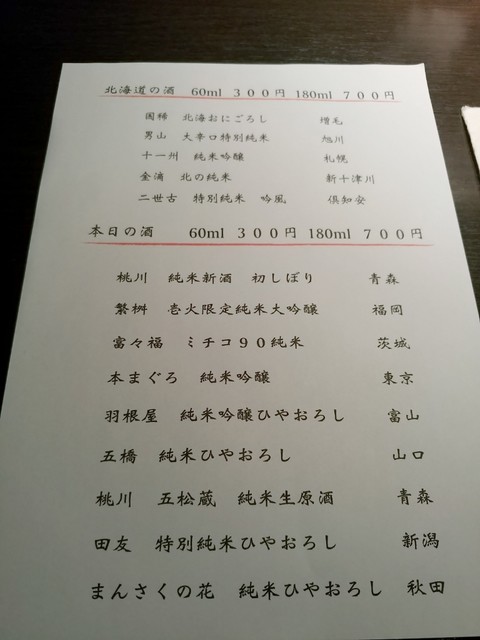 北海道の酒 60ml 300円 180ml 700円
国稀 北海おにごろし 増毛
男山 大辛口特別純米 旭川
十一州 純米吟醸 札幌
金滴 北の純米 新十津川
二世古 特別純米 吟風 倶知安
本日の酒 60ml 300円 180ml 700円
桃川 純米新酒 初しぼり 青森
繁桝 壱火限定純米大吟醸 福岡
富々福 ミチコ90純米 茨城
本まぐろ 純米吟醸 東京
羽根屋 純米吟醸ひやおろし 富山
五橋 純米ひやおろし 山口
桃川 五松蔵 純米生原酒 青森
田友 特別純米ひやおろし 新潟
まんさくの花 純米ひやおろし 秋田